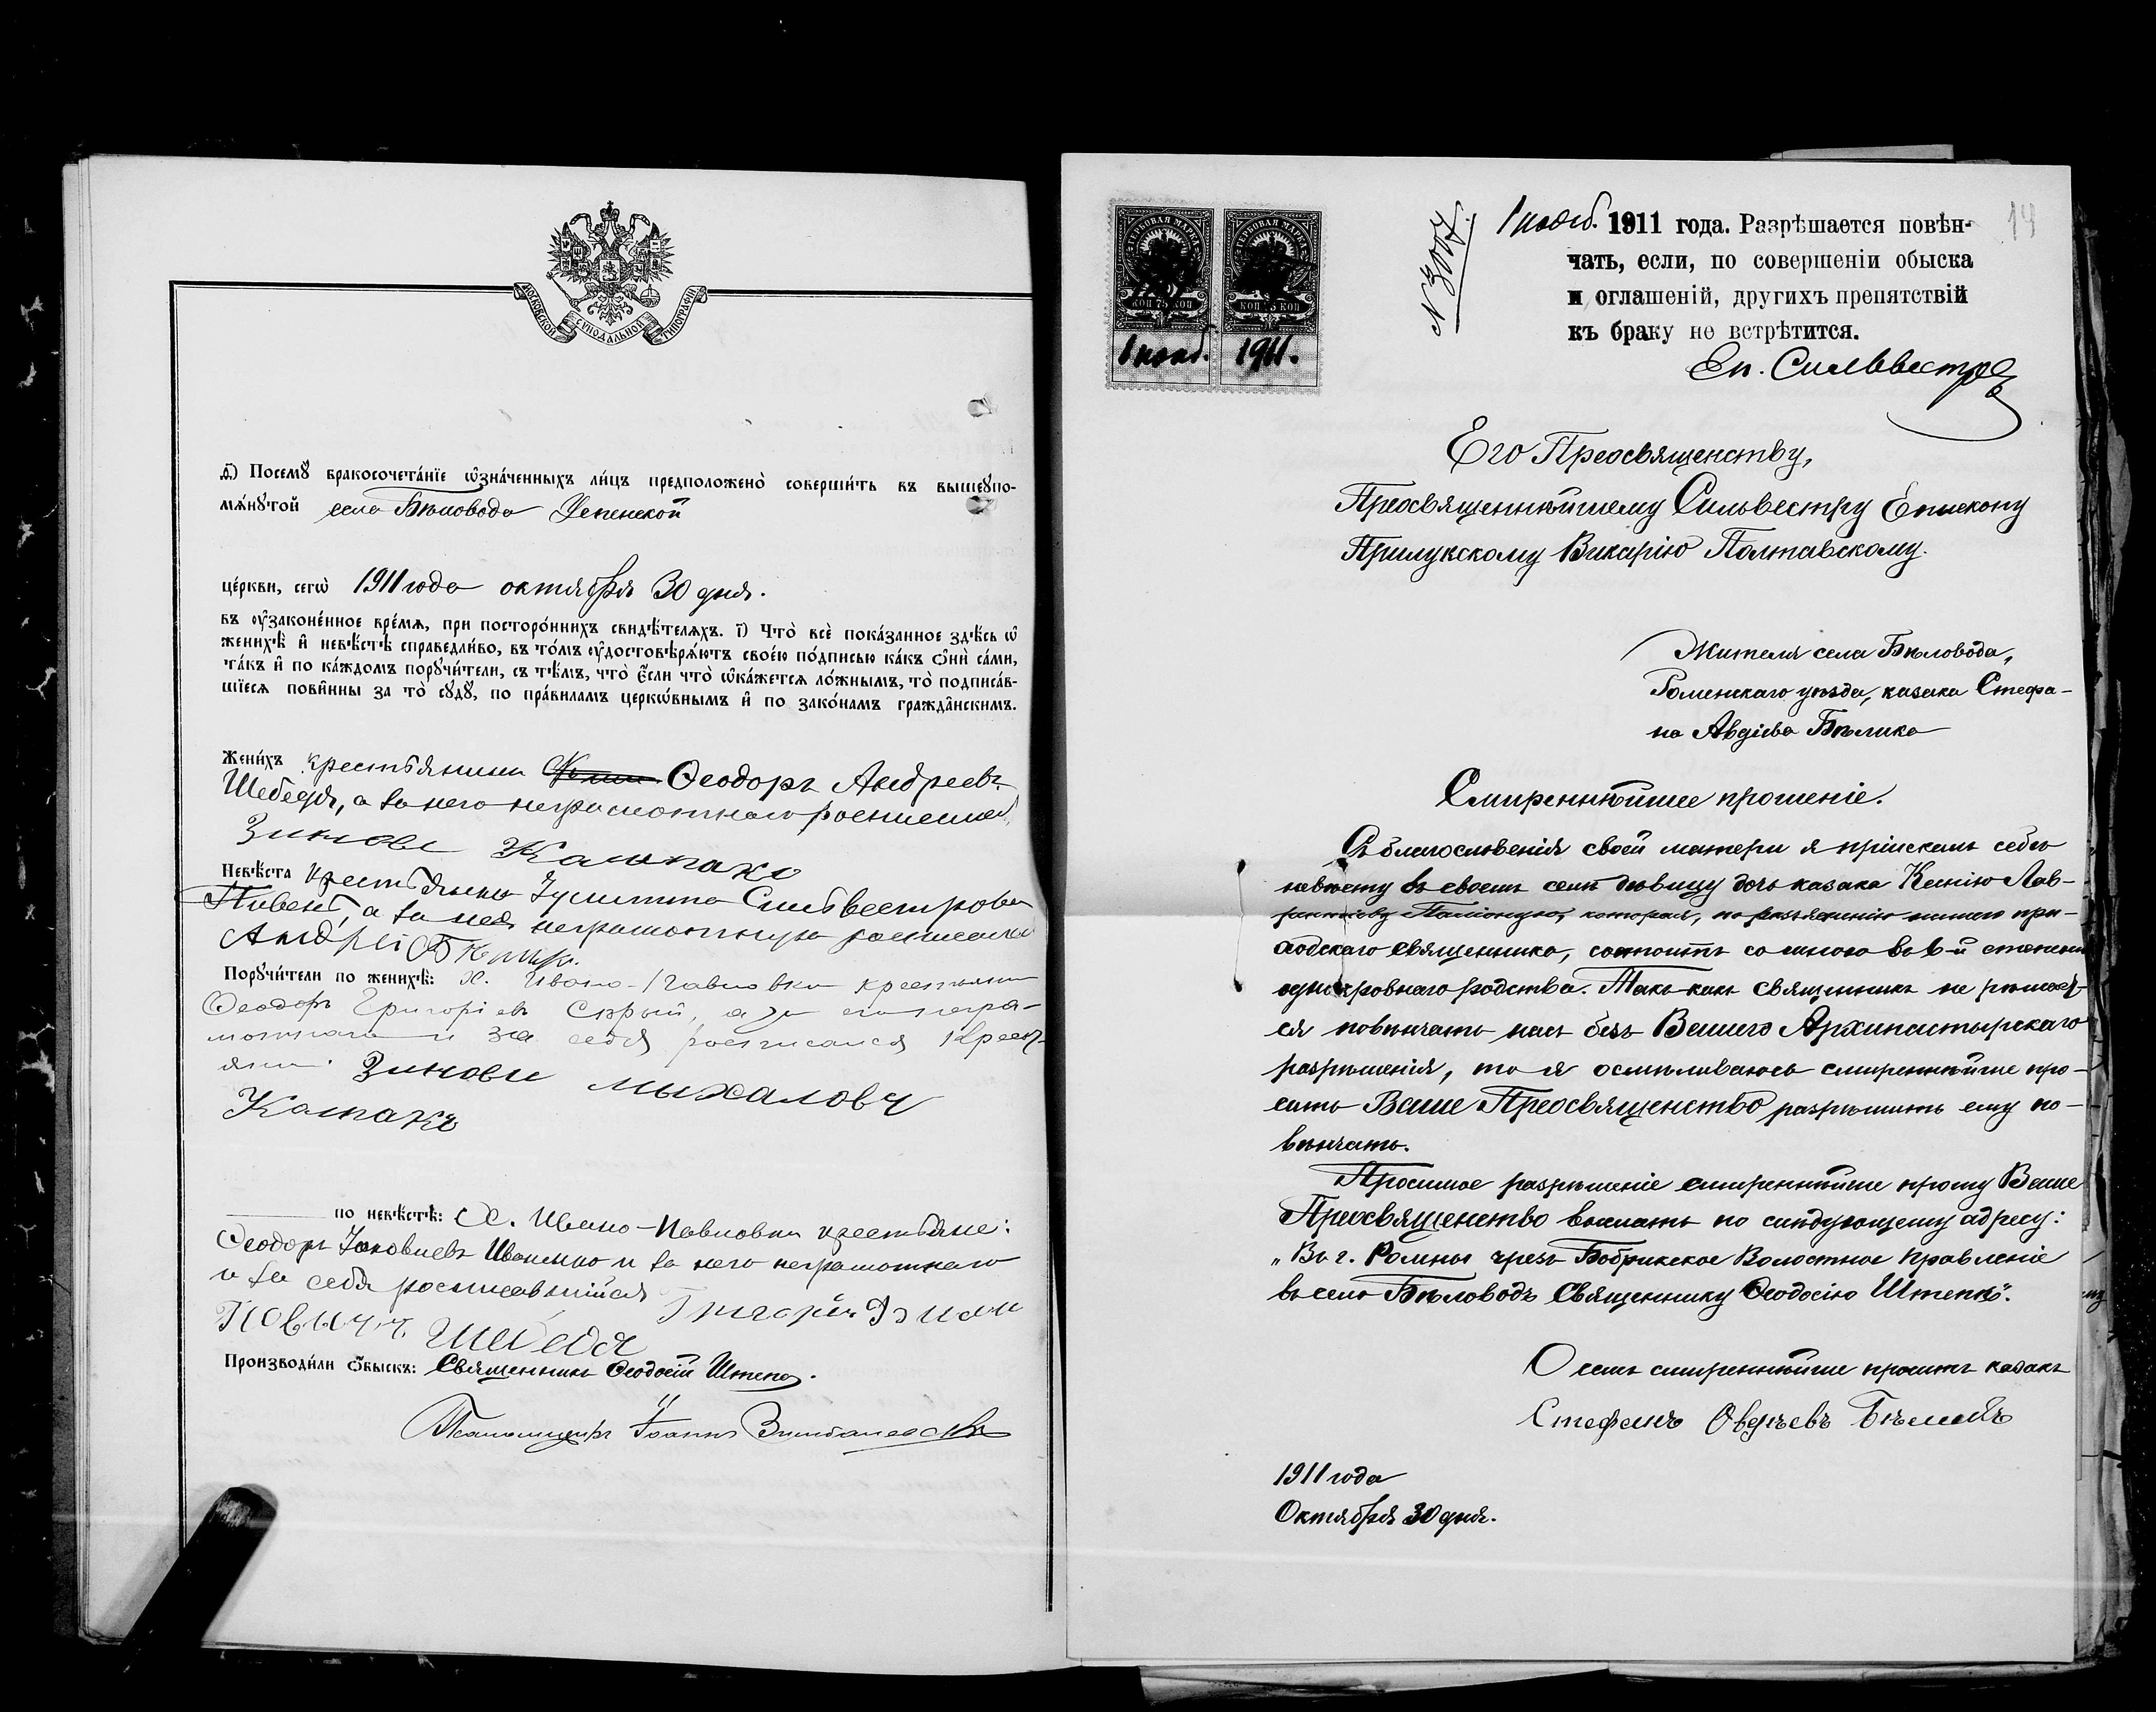 МОСКОВСКОЙ СѴНОДАЛЬНОЙ ТИПОГРАФІИ
д҃) Посемꙋ̀ бракосочета́нїе ѡ҆зна́ченныхъ ли́цъ предположено̀ соверши́ть въ вышеꙋпо-
мѧ́нꙋтой села Бѣловода Успенской
це́ркви, сегѡ̀ 1911 года октября 30 дня.
въ ᲂу҆законе́нное вре́мѧ, при посторо́ннихъ свидѣ́телѧхъ. і҃) Что̀ всѐ пока́занное здѣ́сь ѡ҆
женихѣ̀ и҆ невѣ́стѣ справедли́во, въ то́мъ ᲂу҆достовѣрѧ́ютъ свое́ю по́дписью ка́къ ѻ҆нѝ са́ми,
та́къ и҆ по ка́ждомъ порꙋчи́тели, съ тѣ́мъ, что̀ є҆́сли что̀ ѡ҆ка́жетсѧ ло́жнымъ, то̀ подписа́в-
шїесѧ пови́нны за то̀ сꙋдꙋ̀, по пра́виламъ церкѡ́внымъ и҆ по зако́намъ гражда́нскимъ.
Жени́хъ крестьянинъ Ѳеодоръ Андреевъ
Шебедя, а за него неграмотнаго росписался
Зинове Кашпако
Невѣ́ста крестьянка Іулитта Сильвестрова
Пивень, а за нея неграмотную росписался
Андрі
Порꙋчи́тели по женихѣ̀: Х. Ивано-Павловки крестьяне
Ѳеодоръ Григоріевъ Сѣрый, а за него негра-
мотнаго и за себя росписался крест-
янин Зинове Михалович
Кашпако
по невѣ́стѣ: Х. Ивано-Павловки крестьяне:
Ѳеодоръ Іаковлевъ Иваненко и за него неграмотнаго
и за себя росписавшійся Григорій
Шебедя
Производи́ли ѻ҆́быскъ: Священникъ Ѳеодосій Штепа.
Псаломщикъ Іоаннъ
14
КОП 75 КОП
ГЕРБОВАЯ МАРКА
КОП 75 КОП
ГЕРБОВАЯ МАРКА
1 нояб. 1911.
N 3007.
1 нояб. 1911 года. Разрѣшается повѣн-
чать, если, по совершеніи обыска
и оглашеній, другихъ препятствій
къ браку не встрѣтится.
Еп. Сильвестръ
Его Преосвященству,
Преосвященнѣйшему Сильвестру Епископу
Прилукскому Викарію Полтавскому.
Жителя села Бѣловода,
Роменскаго уѣзда, казака Стефа-
на Авдіева Бѣлика
Смиреннѣйшее прошеніе.
Съ благословенія своей матери я пріискалъ себѣ
невѣсту въ своемъ селѣ дѣвицу дочь казака Ксенію Лав-
рентіеву Паліонную, которая, по разъясненію нашего при-
ходскаго священника, состоитъ со мною въ 6-й степени
однокровнаго родства. Такъ какъ священникъ не рѣшает-
ся повѣнчать насъ безъ Вашего Архипастырскаго
разрѣшенія, то я осмѣливаюсь смиреннѣйше про-
сить Ваше Преосвященство разрѣшить ему по-
вѣнчать.
Просимое разрѣшеніе смиреннѣйше прошу Ваше
Преосвященство выслать по слѣдующему адресу:
„Въ г. Ромны чрезъ Бобрикское Волостное Правленіе
въ село Бѣловодъ Священнику Ѳеодосію Штепѣ".
О семъ смиреннѣйше проситъ казакъ
Стефанъ Овдѣевъ Бѣликъ
1911 года
Октября 30 дня.